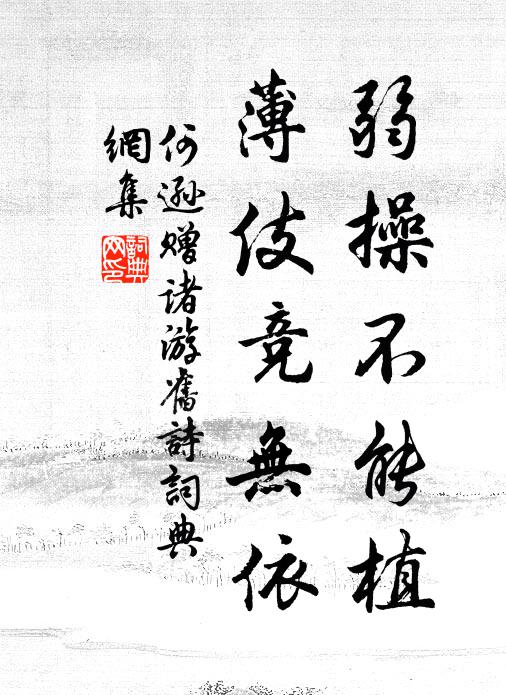 弱操不能植
薄伎竞無依
何遜赠诸游舊詩詞典
網集
詞典
网印